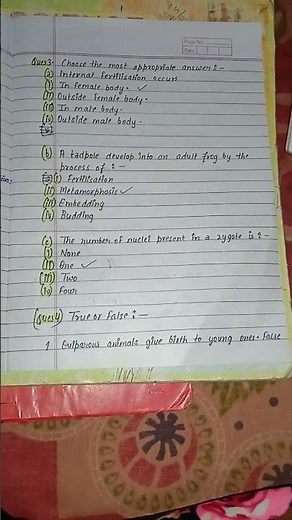 Page No.
Date
Ques3- Choose the most appropriate answers:-
(a) Internal fertilisation occurs
(i) In female body. ✓
(ii) Outside female body.
(iii) In male body.
(iv) Outside male body.
(b) A tadpole develop into an adult frog by the
process of :-
(i) Fertilisation
(ii) Metamorphosis ✓
(iii) Embedding
(iv) Budding
(c) The number of nuclei present in a zygote is :-
(i) None
(ii) One ✓
(iii) Two
(iv) Four
Ques4) True or False :-
1. Oviparous animals give birth to young ones. False